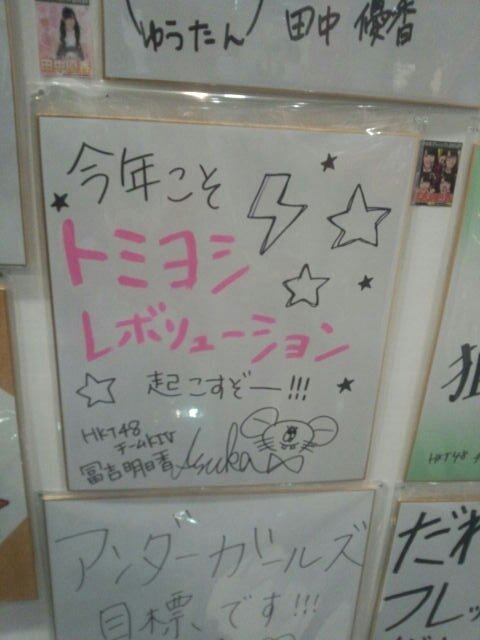 ゆうたん 田中 優香
今年こそ
トミヨシ
レボリューション
起こすぞー!!!
HKT48
チームKIV
冨吉明日香 Asuka
アンダーガールズ
目標です!!!
狙
HKT48
だれ
フレッ